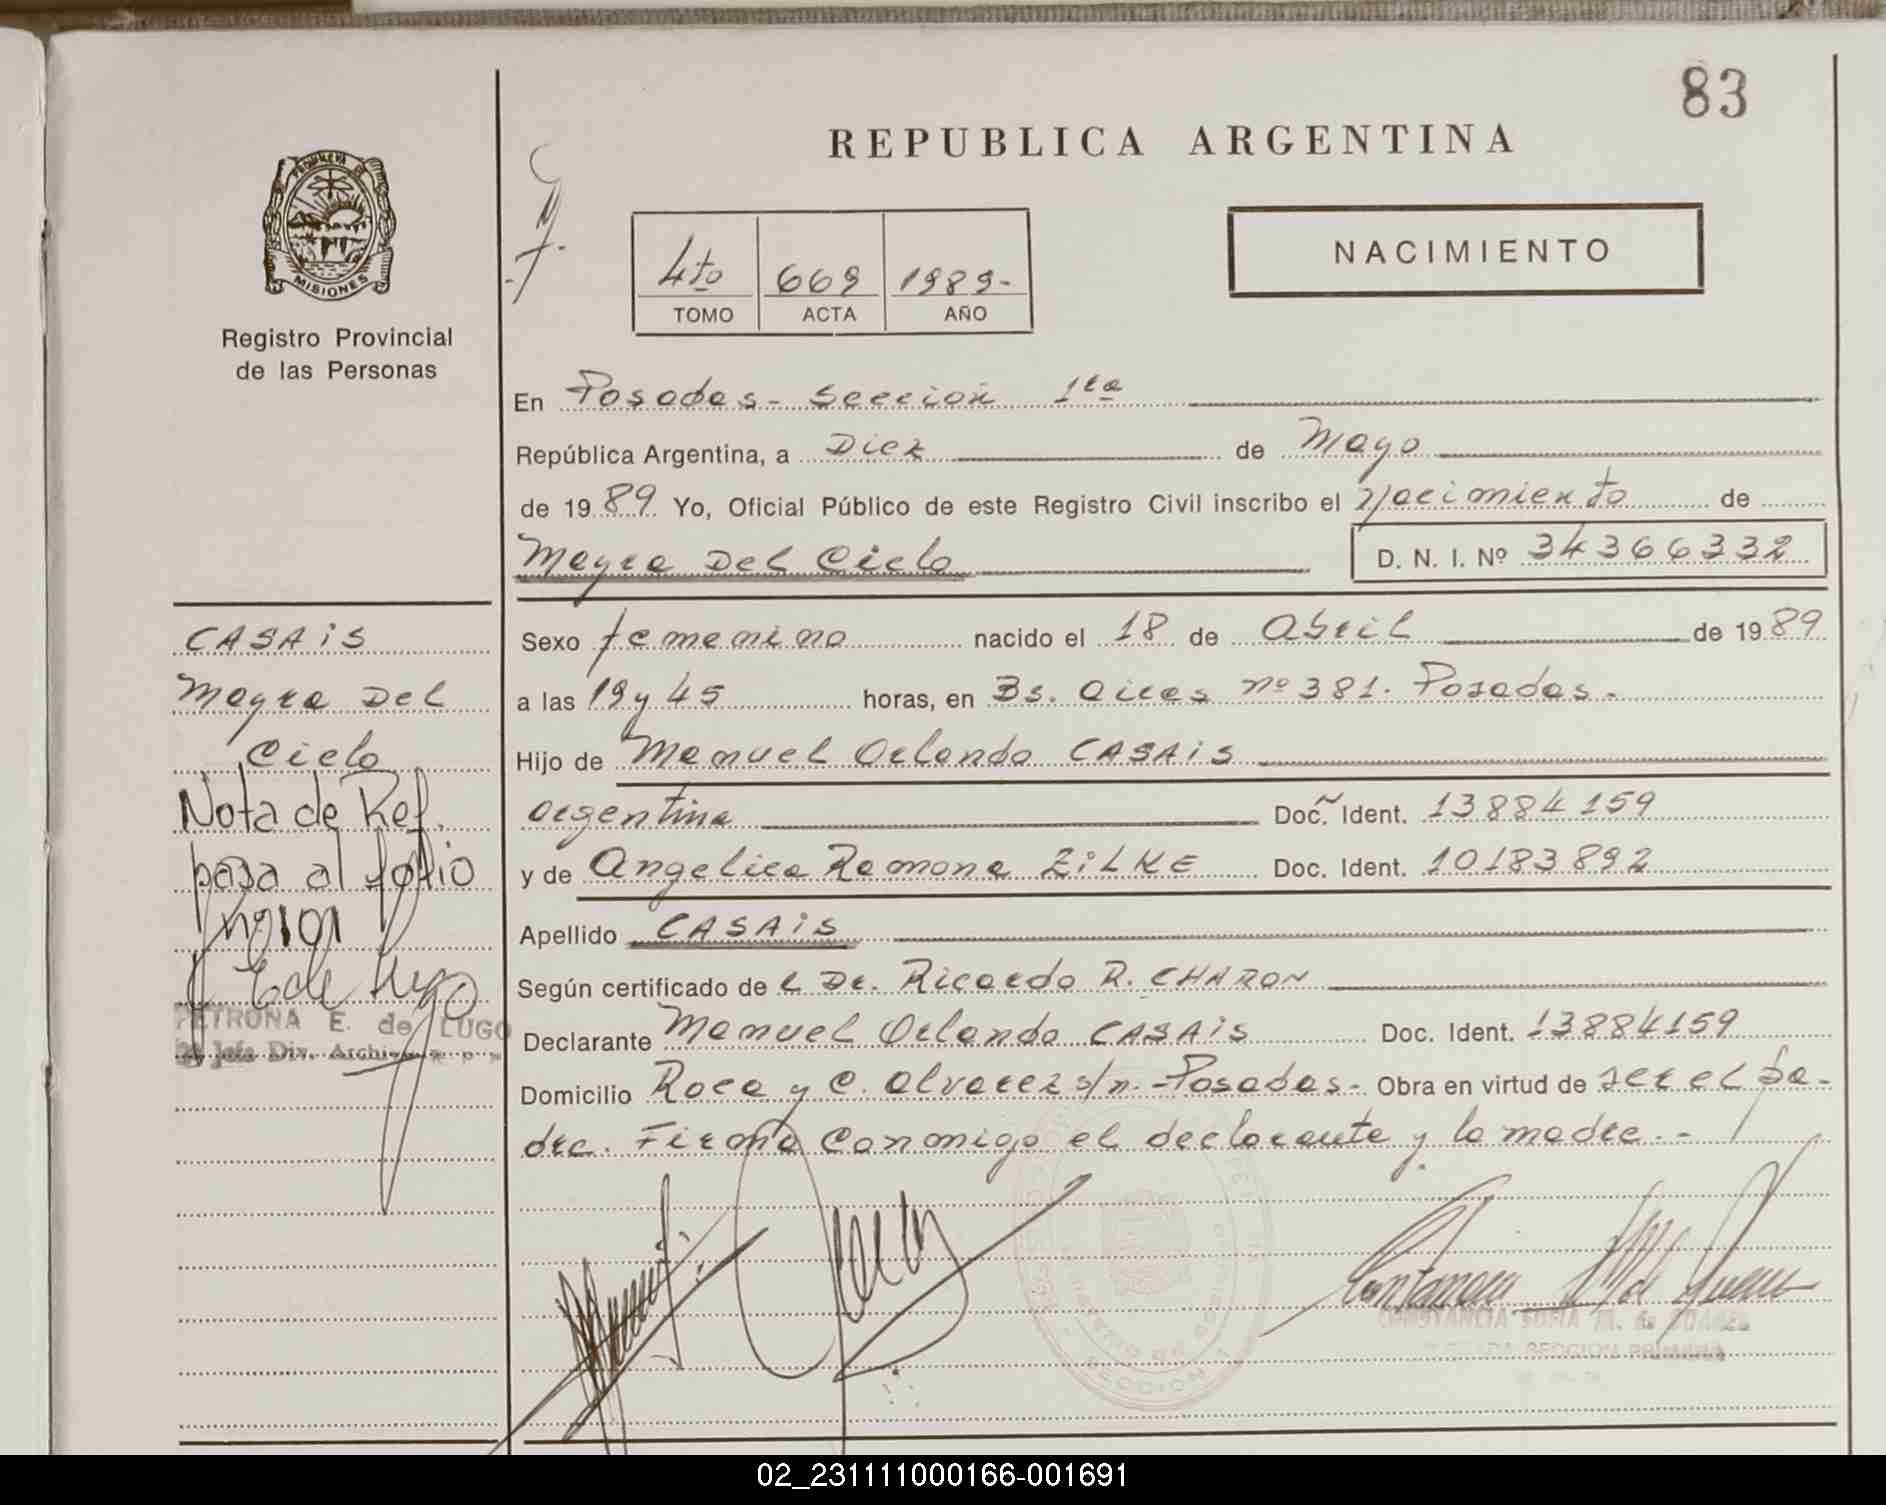 83
REPUBLICA ARGENTINA
NACIMIENTO
4to 669 1989-
TOMO ACTA AÑO
MISIONES
Registro Provincial
de las Personas
En Posadas - Sección 1ra
República Argentina, a Diez de Mayo
de 1989 Yo, Oficial Público de este Registro Civil inscribo el Nacimiento de
Mayra Del Cielo D. N. I. Nº 34366332
Sexo femenino nacido el 18 de Abril de 1989
a las 19 y 45 horas, en Bs. Aires nº 381. Posadas.-
Hijo de Manuel Orlando CASAiS
argentina Doc. Ident. 13884159
y de Angelica Ramona ZiLKE Doc. Ident. 10183892
Apellido CASAiS
Según certificado de l Dr. Ricardo R. CHARON
Declarante Manuel Orlando CASAiS Doc. Ident. 13884159
Domicilio Roca y C. Alvarez s/n.-Posadas.- Obra en virtud de ser el pa-
dre. Firma conmigo el declarante y la madre.-
CASAiS
Mayra Del
Cielo
Nota de Ref.
pasa al folio
Nº 101
E de Lugo
PETRONA E. de LUGO
Jefa Div. Archivo R P P
CONSTANCIA SOFIA M. de SUAREZ
SECCION PRIMERA
SECCION 1
02_231111000166-001691